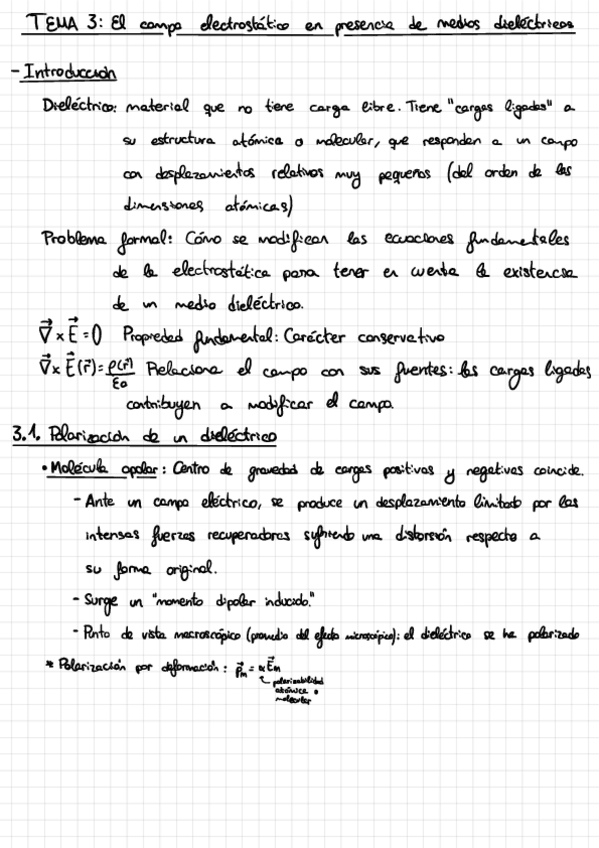 TEMA 3: El campo electrostático en presencia de medios dieléctricos
- Introducción
Dieléctrico: material que no tiene carga libre. Tiene "cargas ligadas" a
su estructura atómica o molecular, que responden a un campo
con desplazamientos relativos muy pequeños (del orden de las
dimensiones atómicas)
Problema formal: Cómo se modifican las ecuaciones fundamentales
de la electrostática para tener en cuenta la existencia
de un medio dieléctrico.
∇⃗ x E⃗ = 0 Propiedad fundamental: Carácter conservativo
∇⃗ x E⃗(r⃗) = ρ(r⃗)/ε0 Relaciona el campo con sus fuentes: las cargas ligadas
contribuyen a modificar el campo.
3.1. Polarización de un dieléctrico
• Molécula apolar: Centro de gravedad de cargas positivas y negativas coincide.
- Ante un campo eléctrico, se produce un desplazamiento limitado por las
intensas fuerzas recuperadoras sufriendo una distorsión respecto a
su forma original.
- Surge un "momento dipolar inducido."
- Punto de vista macroscópico (promedio del efecto microscópico): el dieléctrico se ha polarizado
* Polarización por deformación: p⃗m = αE⃗m
polarizabilidad
atómica o
molecular